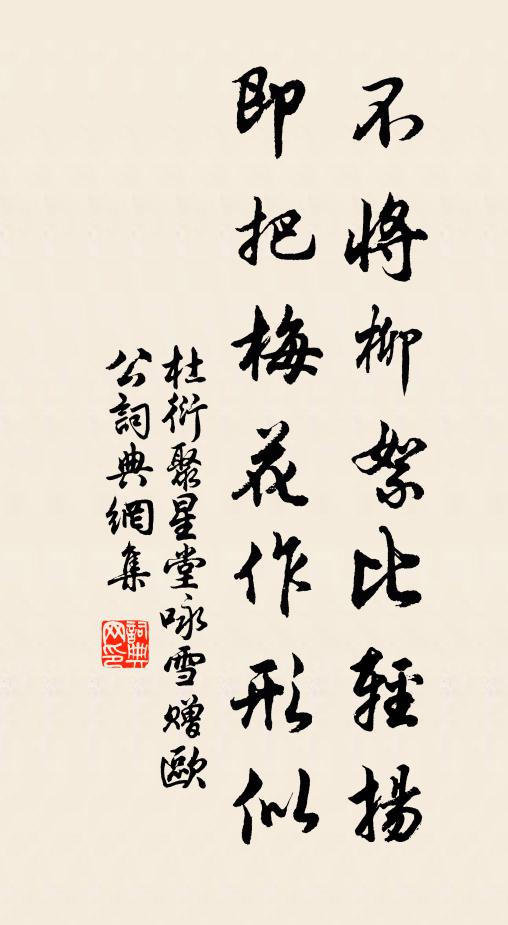 不將柳絮比輕揚
即把梅花作形似
杜衍聚星堂咏雪贈歐
公詞典網集
詞典網印